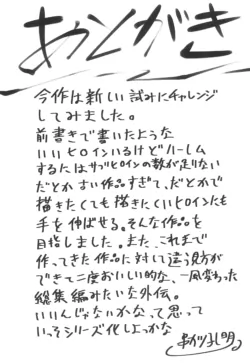 あとがき
今作は新しい試みにチャレンジ
してみました。
前書きで書いたような
いいヒロインいるけどハーレム
するにはサブヒロインの数が足りない
だとか 古い作品すぎて、だとかで
描きたくても描きにくいヒロインにも
手を伸ばせる。そんな作品を
目指しました。また、これまで
作ってきた作品に対して違う見方が
できて二度おいしい的な、一風変わった
総集編みたいな外伝。
いいんじゃないかな、て思って
いっそシリーズ化しよっかな